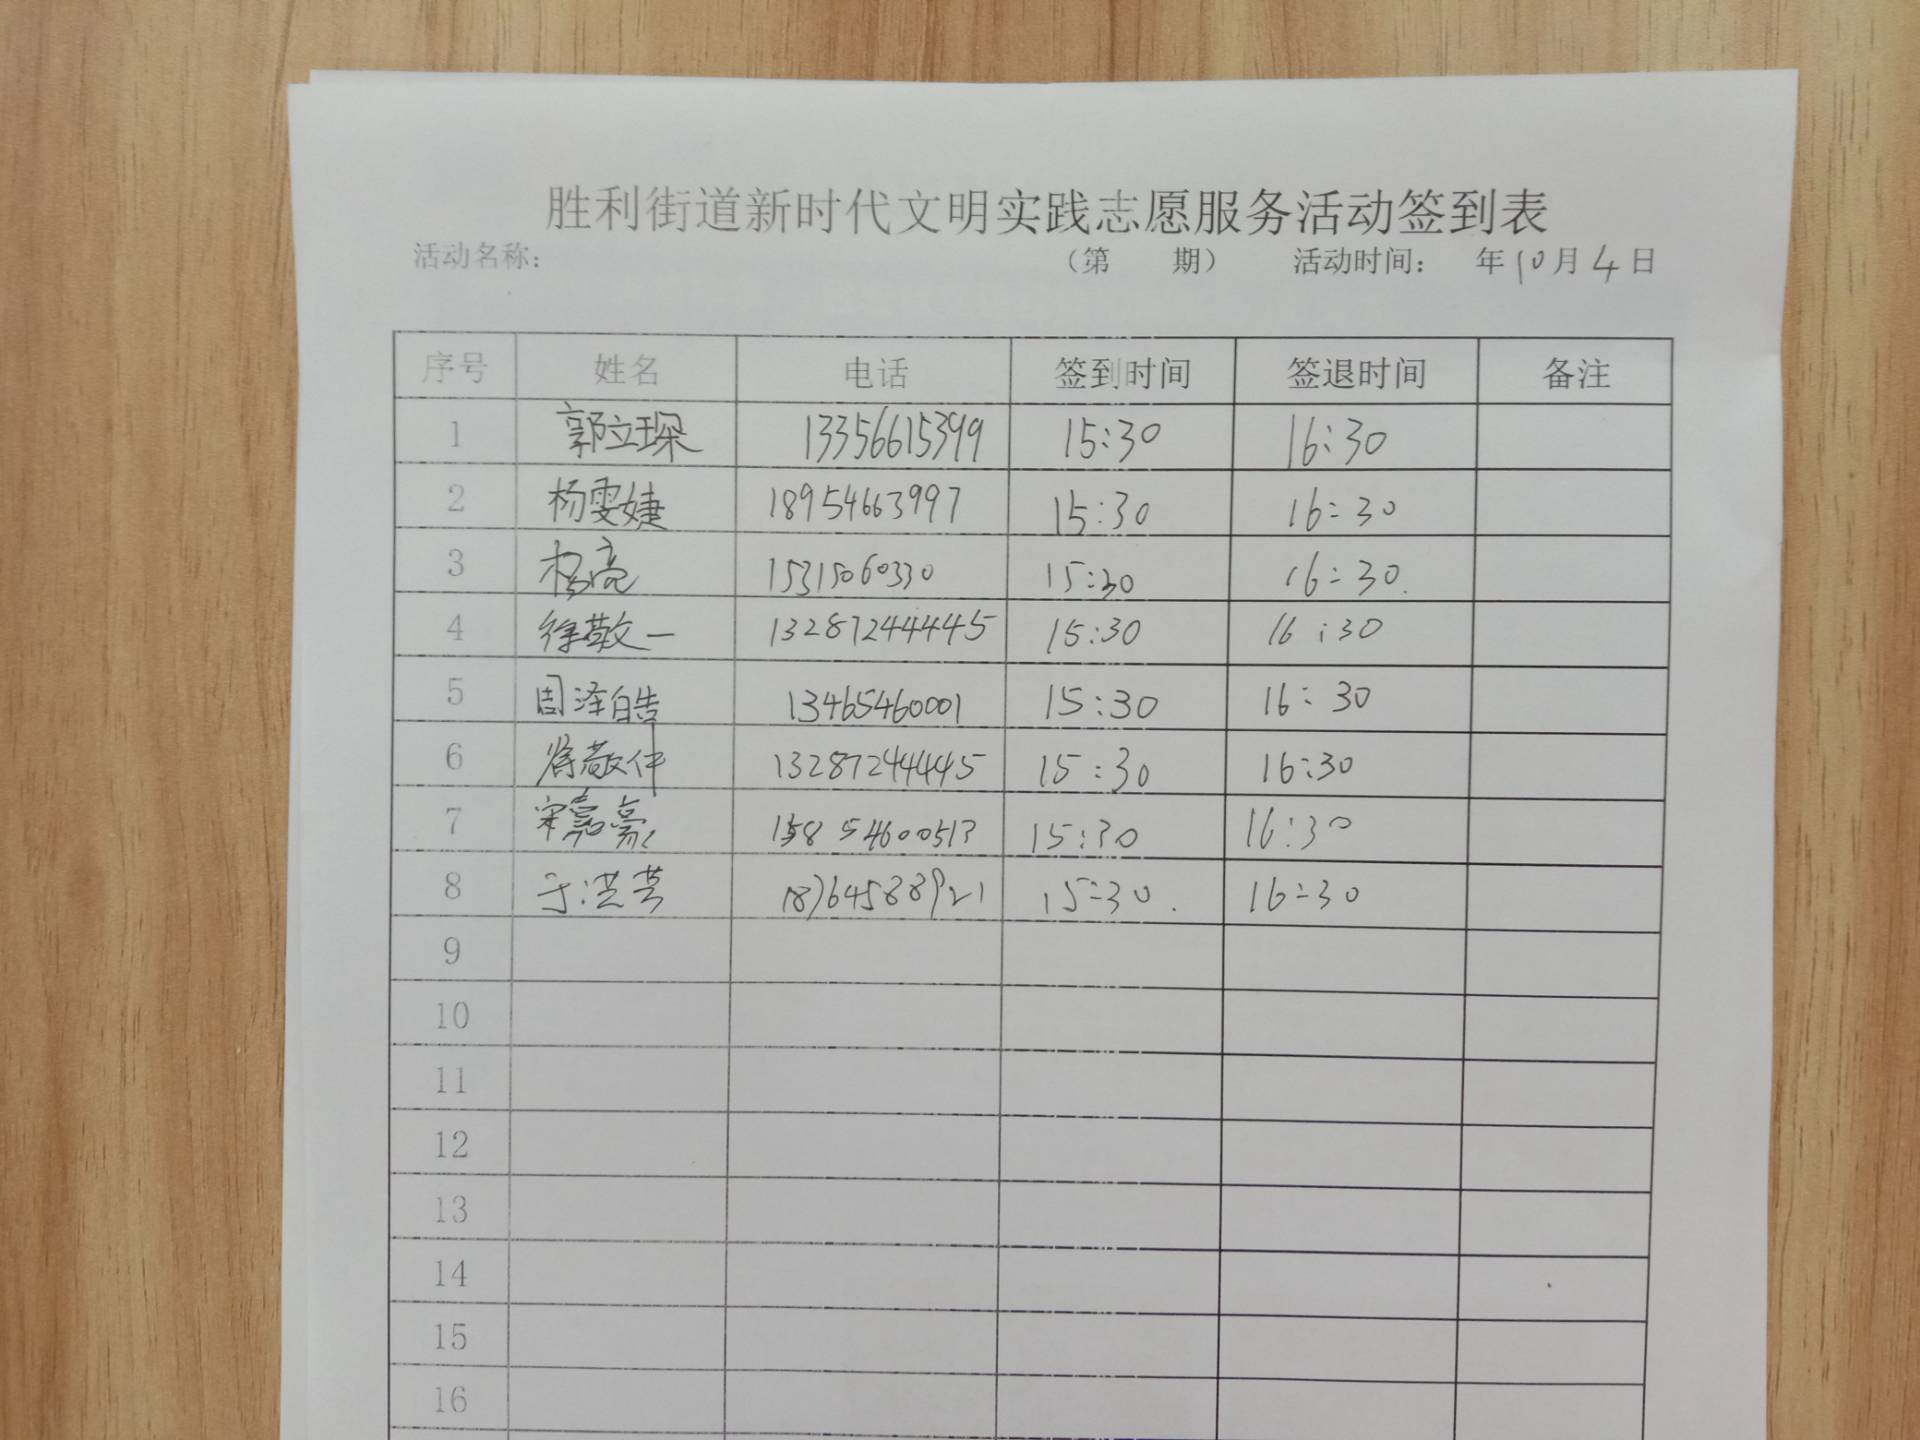 胜利街道新时代文明实践志愿服务活动签到表
活动名称： （第 期） 活动时间： 年10月4日
序号 姓名 电话 签到时间 签退时间 备注
1 郭立琛 13356615399 15:30 16:30
2 杨雯婕 18954663997 15:30 16:30
3 杨亮 15:30 16:30
4 徐敬一 13287244445 15:30 16:30
5 周泽皓 13465460001 15:30 16:30
6 敬仲 13287244445 15:30 16:30
7 宋嘉豪 15854600513 15:30 16:30
8 于洪芸 15:30 16:30
9
10
11
12
13
14
15
16